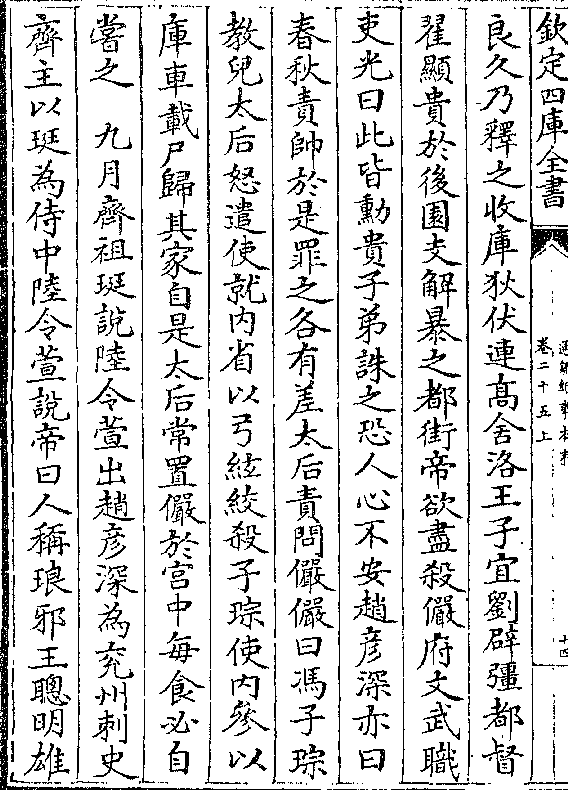 欽定四庫全書
通鑑紀事本末
卷二十五上
十四
良久乃釋之收庫狄伏連高舍洛王子宜劉辟彊都督
翟顯貴於後園支解暴之都街帝欲盡殺儼府文武職
吏光曰此皆勳貴子弟誅之恐人心不安趙彦深亦曰
春秋責帥於是罪之各有差太后責問儼儼曰馮子琮
教兒太后怒遣使就内省以弓絃絞殺子琮使内參以
庫車載尸歸其家自是太后常置儼於宫中每食必自
嘗之　九月齊祖珽說陸令萱出趙彦深為兖州刺史
齊主以珽為侍中陸令萱說帝曰人稱琅邪王聰明雄